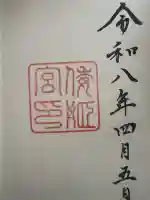 令和八年四月五日
倭姫宮印